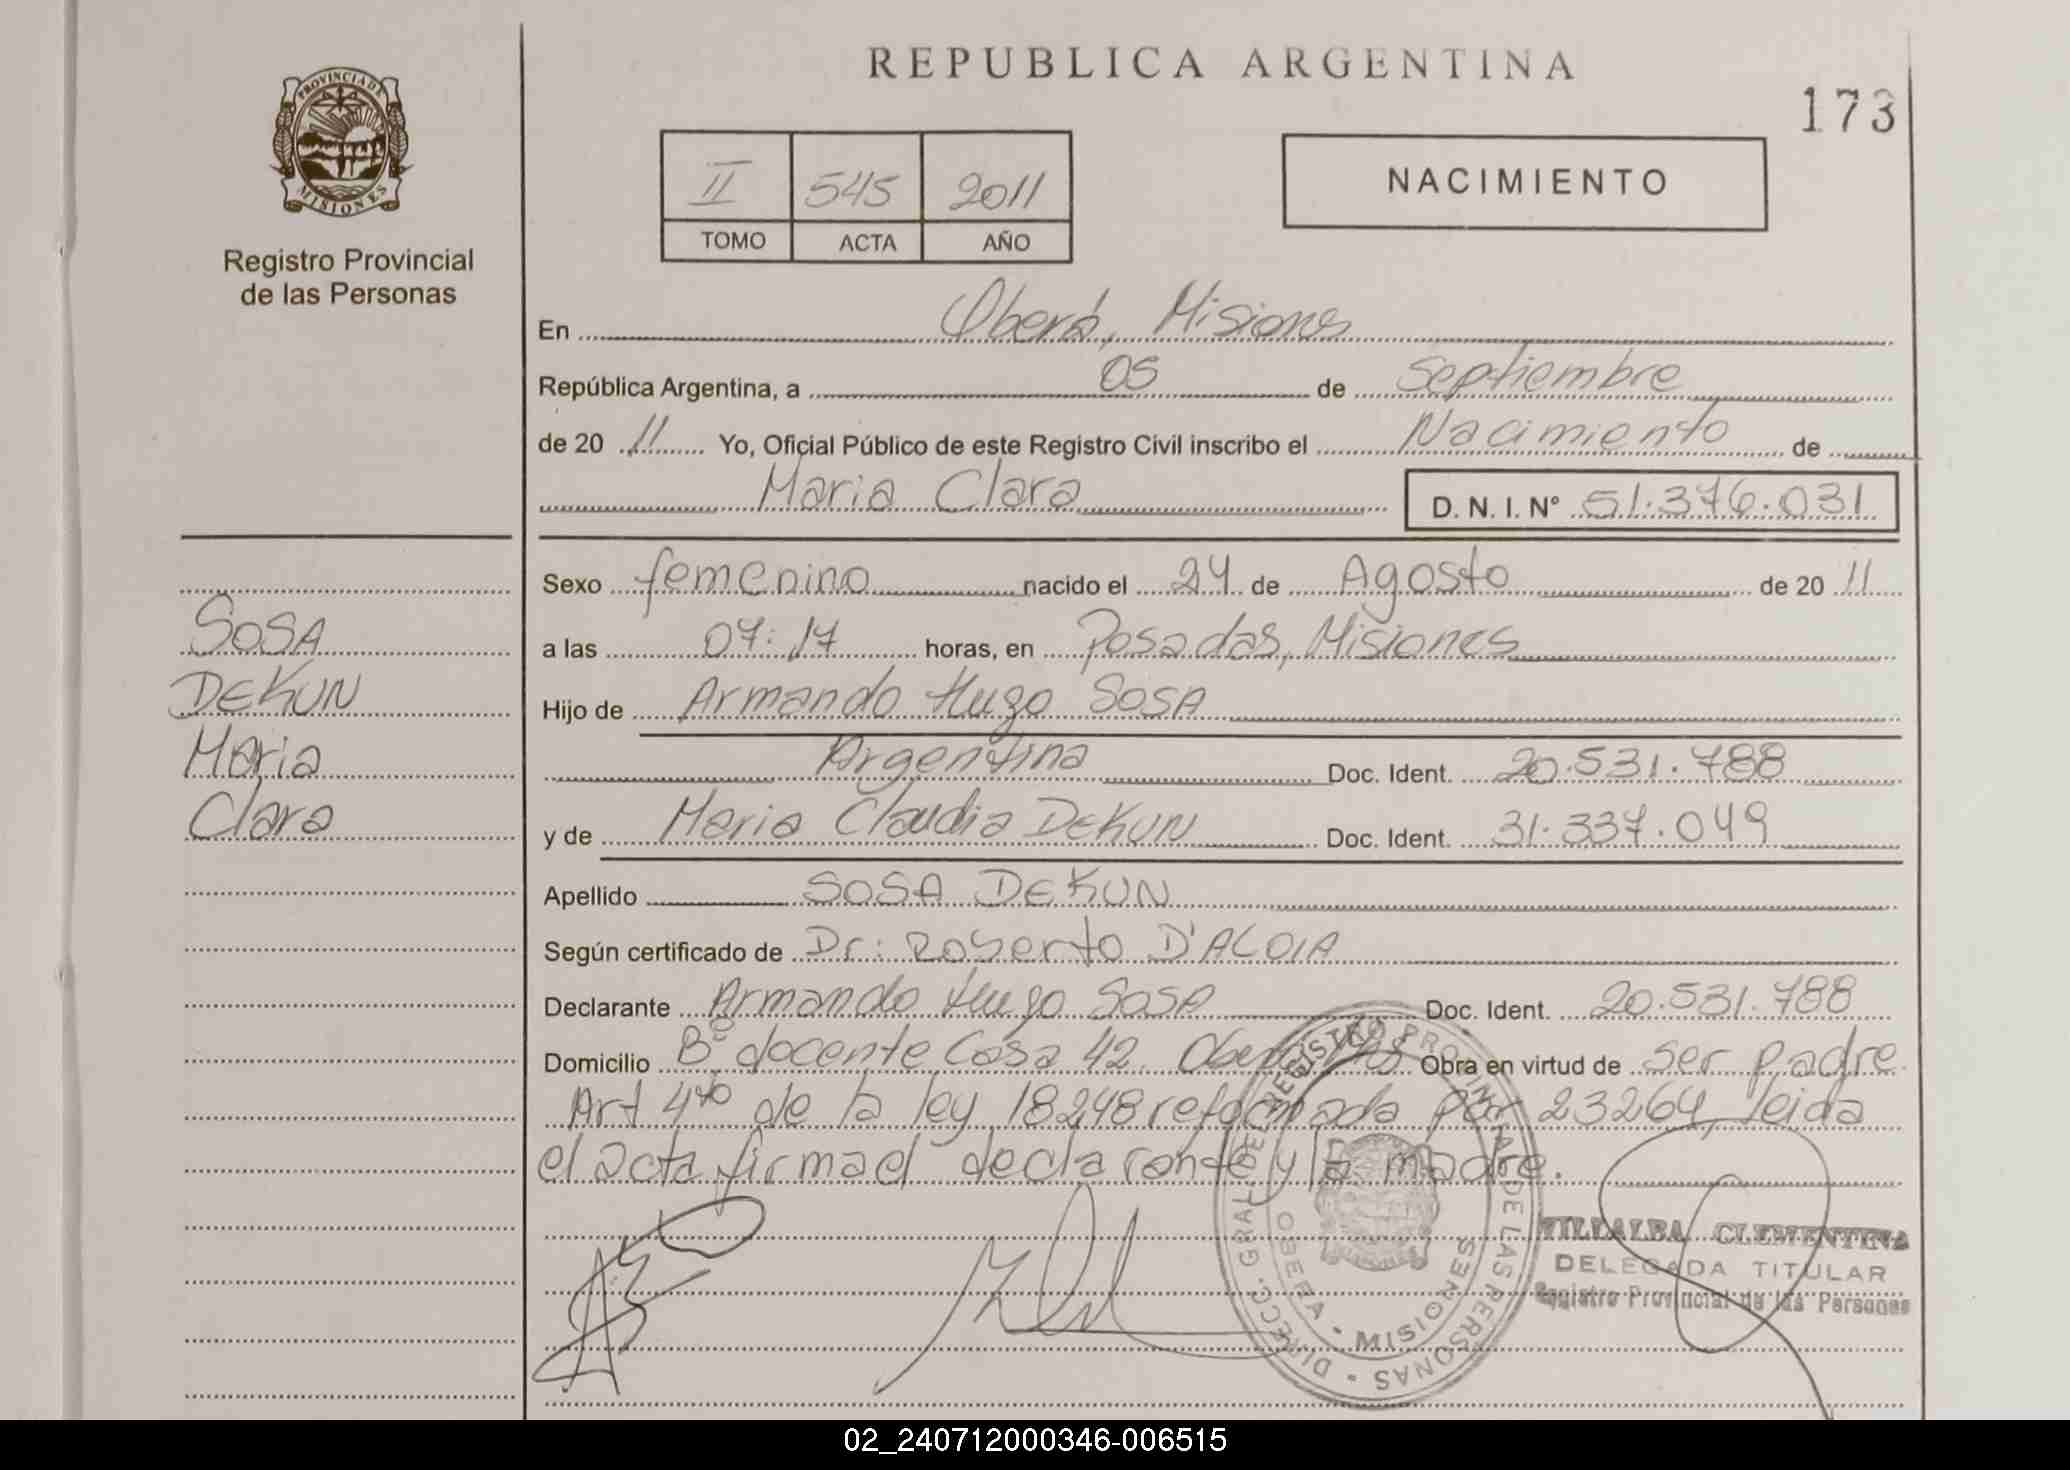 REPUBLICA ARGENTINA
173
PROVINCIA DE
MISIONES
Registro Provincial
de las Personas
II 545 2011
TOMO ACTA AÑO
NACIMIENTO
En Oberá, Misiones
República Argentina, a 05 de Septiembre
de 20 11 Yo, Oficial Público de este Registro Civil inscribo el Nacimiento de
Maria Clara D. N. I. Nº 51.376.031
Sexo femenino nacido el 24 de Agosto de 20 11
a las 07:17 horas, en Posadas, Misiones
Hijo de Armando Hugo SOSA
Argentina Doc. Ident. 20.531.788
y de Maria Claudia DEKUN Doc. Ident. 31.337.049
Apellido SOSA DEKUN
Según certificado de Dr: Roberto D'ALOIA
Declarante Armando Hugo SOSA Doc. Ident. 20.531.788
Domicilio Bº docente Casa 42. Obera Mns Obra en virtud de ser padre
Art 4to de la ley 18248 reformada por 23264, leida
el acta firma el declarante y la madre.
SOSA
DEKUN
Maria
Clara
DIRECC. GRAL. DE REGISTRO PROVINCIAL DE LAS PERSONAS
OBERA - MISIONES
VILLALBA CLEMENTINA
DELEGADA TITULAR
Registro Provincial de las Personas
02_240712000346-006515